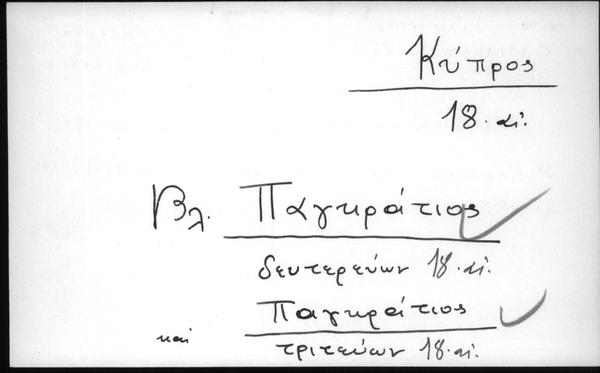 Κύπρος
18. αἰ.
Βλ. Παγκράτιος
δευτερεύων 18. αἰ.
Παγκράτιος
καὶ
τριτεύων 18. αἰ.